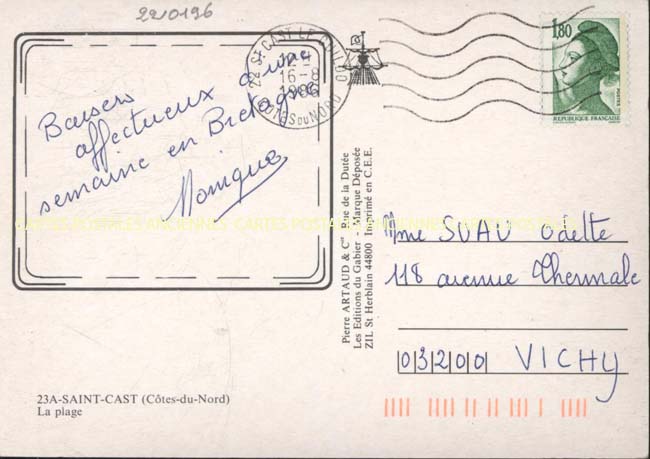 220196
22 ST CAST LE GUILDO
12-4
16-8
1986
COTES DU NORD
1,80
POSTES
REPUBLIQUE FRANÇAISE
Baisers
affectueux d'une
semaine en Bretagne
Monique
CARTES POSTALES ANCIENNES CARTES POSTALES ANCIENNES CARTES POSTALES
Pierre ARTAUD & Cie Rue de la Dutée
Les Editions du Gabier - Marque Déposée
ZIL St Herblain 44800 Imprimé en C.E.E.
Mme SUAU Odette
118 avenue Thermale
03200 VICHY
23A-SAINT-CAST (Côtes-du-Nord)
La plage